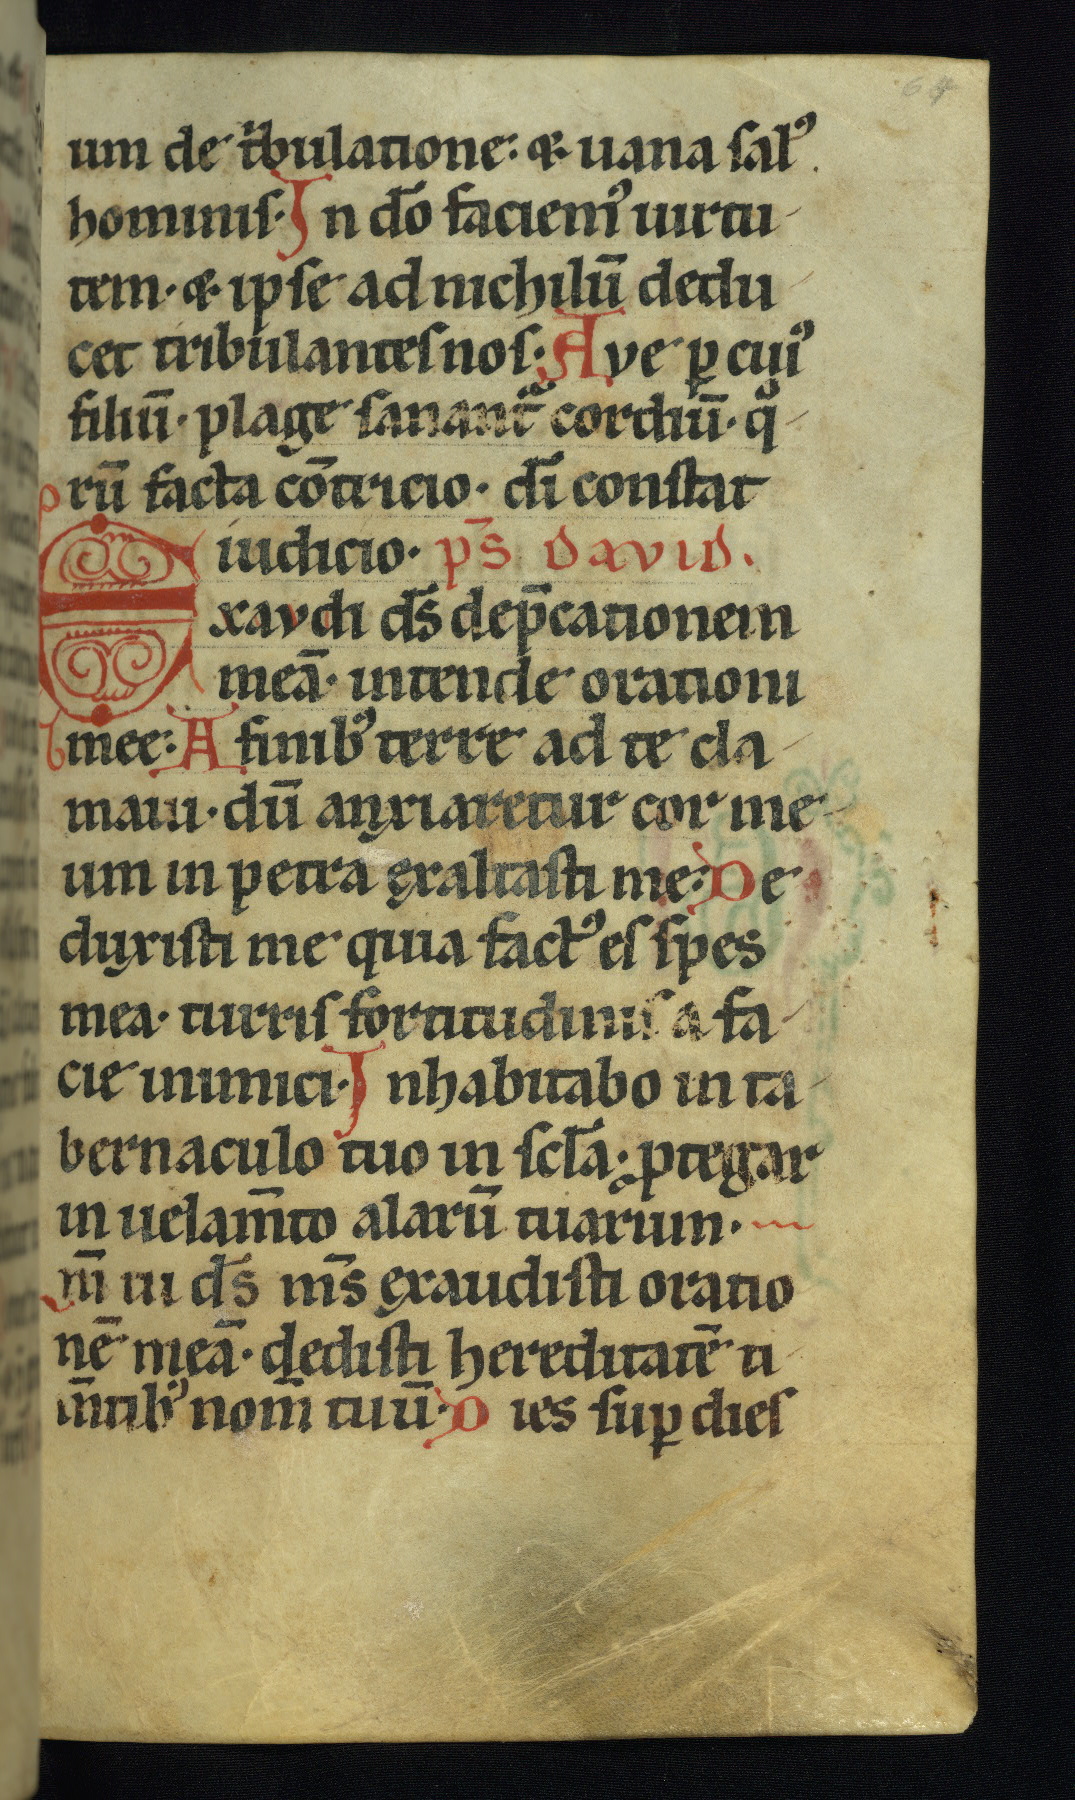 64
um de t̾bulatione: ⁊ uana salꝰ.
hominis· In do̅ faciemꝰ uirtu-
tem· ⁊ ipse ad nichilu̅ dedu-
cet tribulantes nos: Ave ꝑ cuiꝰ
filiu̅· plage sanant᷑ cordiu̅· qͦ-
ru̅ facta co̅tricio· di̅ constat
iudicio· ps̅ david.
Exavdi ds̅ dep̅cationem
mea̅· intende orationi
mee: A finibꝰ terre ad te cla-
maui· du̅ anxiaretur cor me-
um in petra exaltasti me: De-
duxisti me quia factꝰ es spes
mea· turris fortitudinis a fa-
cie inimici· Inhabitabo in ta-
bernaculo tuo in scl̅a· ꝓtegar
in uelam̅to alaru̅ tuarum·
m̅ tu ds̅ ms̅ exaudisti oratio
ne̅ mea̅· dedisti hereditate̅ ti-
m̅tibꝰ nom̅ tuu̅· Dies suꝑ dies